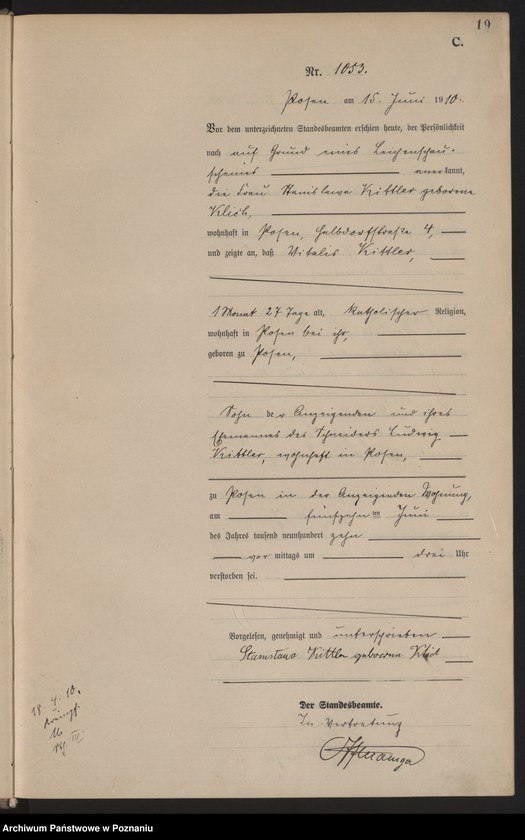 19
C.
Nr. 1053.
Posen am 15. Juni 1910.
Vor dem unterzeichneten Standesbeamten erschien heute, der Persönlichkeit
nach auf Grund eines Leichenschau-
scheines anerkannt,
die Frau Stanislawa Kittler geborene
Klich,
wohnhaft in Posen, Halbdorfstraße 4,
und zeigte an, daß Vitalis Kittler,
1 Monat 27 Tage alt, katholischer Religion,
wohnhaft in Posen bei ihr,
geboren zu Posen,
Sohn der Anzeigenden und ihres
Ehemannes des Schneiders Ludwig
Kittler, wohnhaft in Posen,
zu Posen in der Anzeigenden Wohnung,
am fünfzehnten Juni
des Jahres tausend neunhundert zehn
vor mittags um drei Uhr
verstorben sei.
Vorgelesen, genehmigt und unterschrieben
Stanisława Kittler geborene
Der Standesbeamte.
In Vertretung
18. 4. 10.
Archiwum Państwowe w Poznaniu